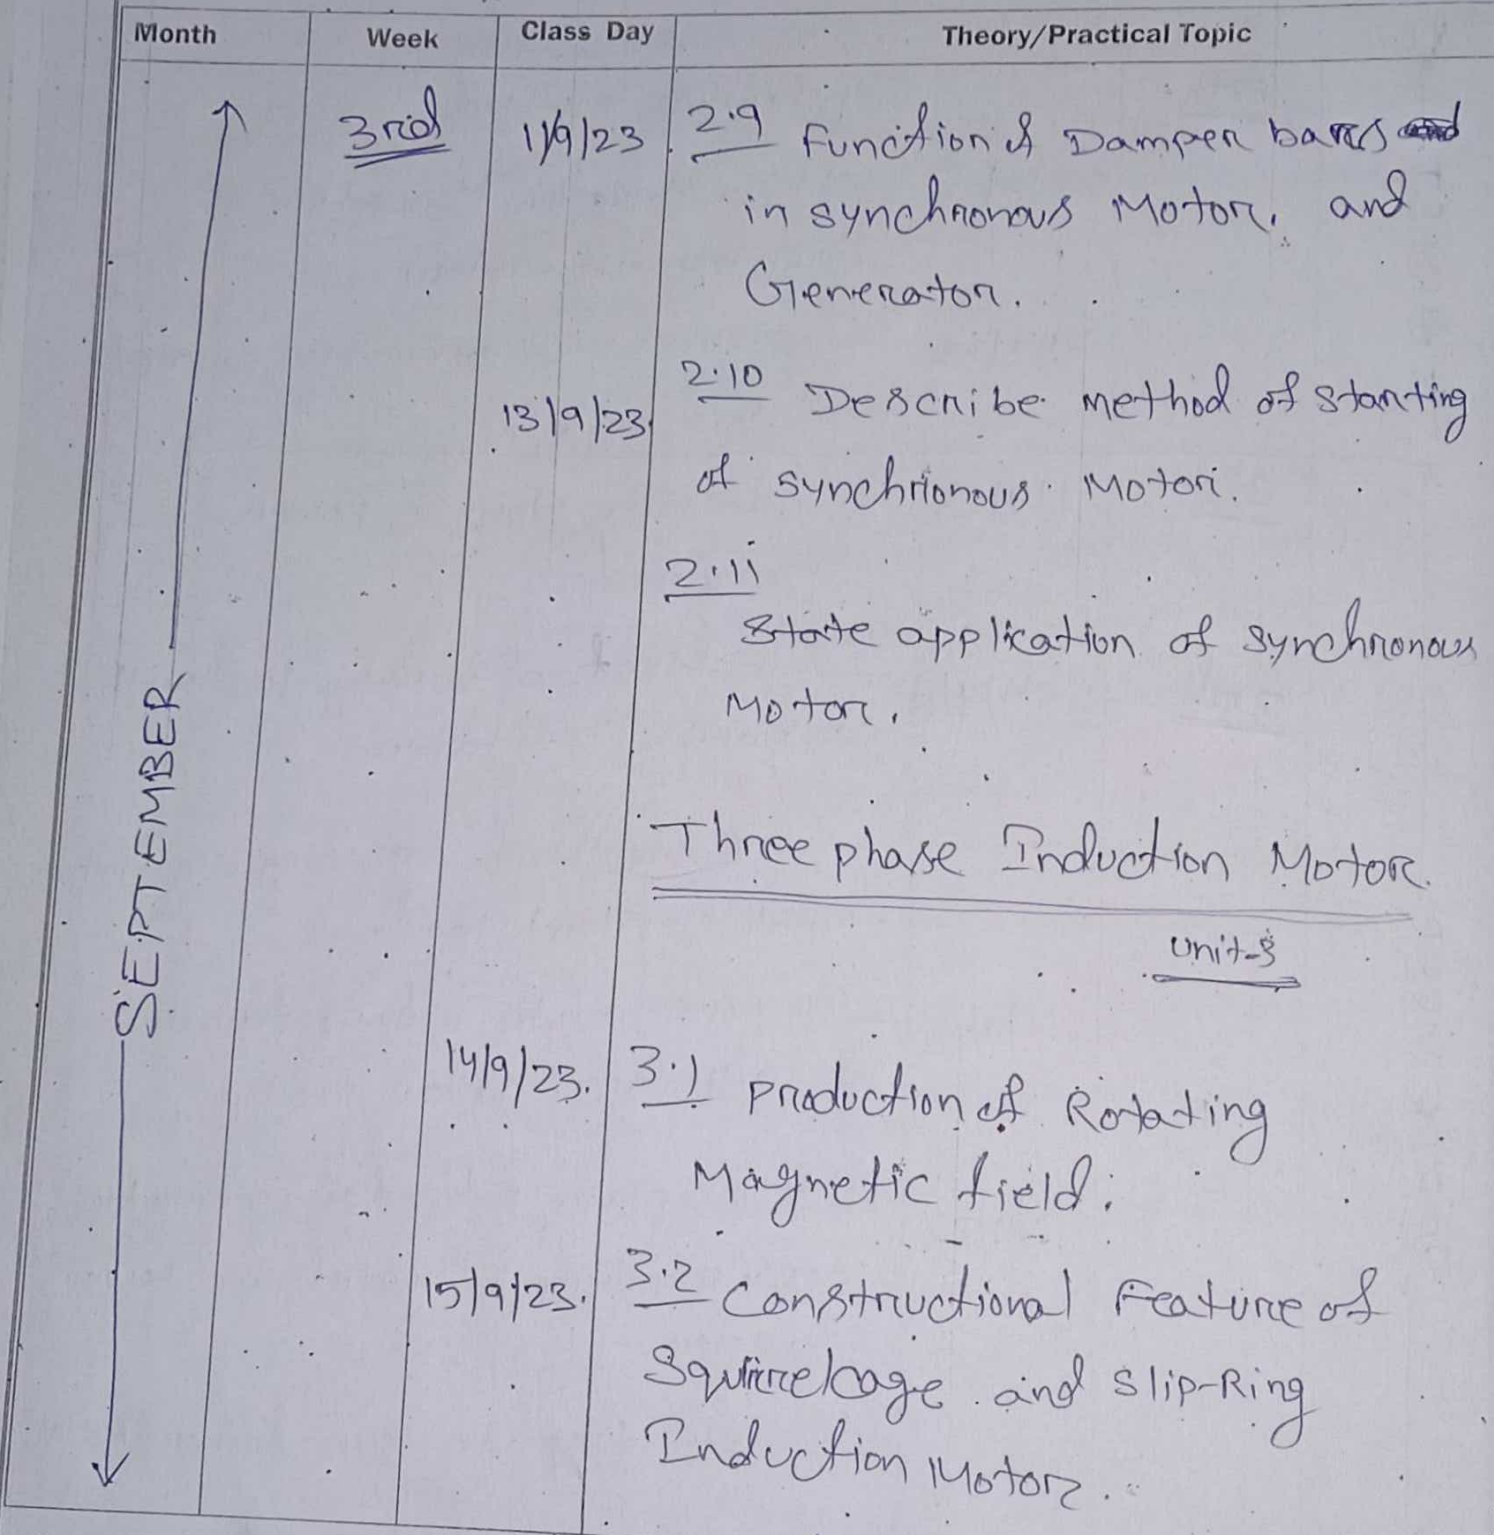 Month Week Class Day Theory/Practical Topic
3rd 11/9/23 2.9 Function of Damper bars
in synchronous Motor, and
Generator.
13/9/23 2.10 Describe method of starting
of synchronous Motor.
2.11
State application of synchronous
Motor.
SEPTEMBER
Three phase Induction Motor.
Unit-3
14/9/23. 3.1 Production of Rotating
Magnetic field.
15/9/23. 3.2 Constructional Feature of
Squirrelcage and Slip-Ring
Induction Motor.